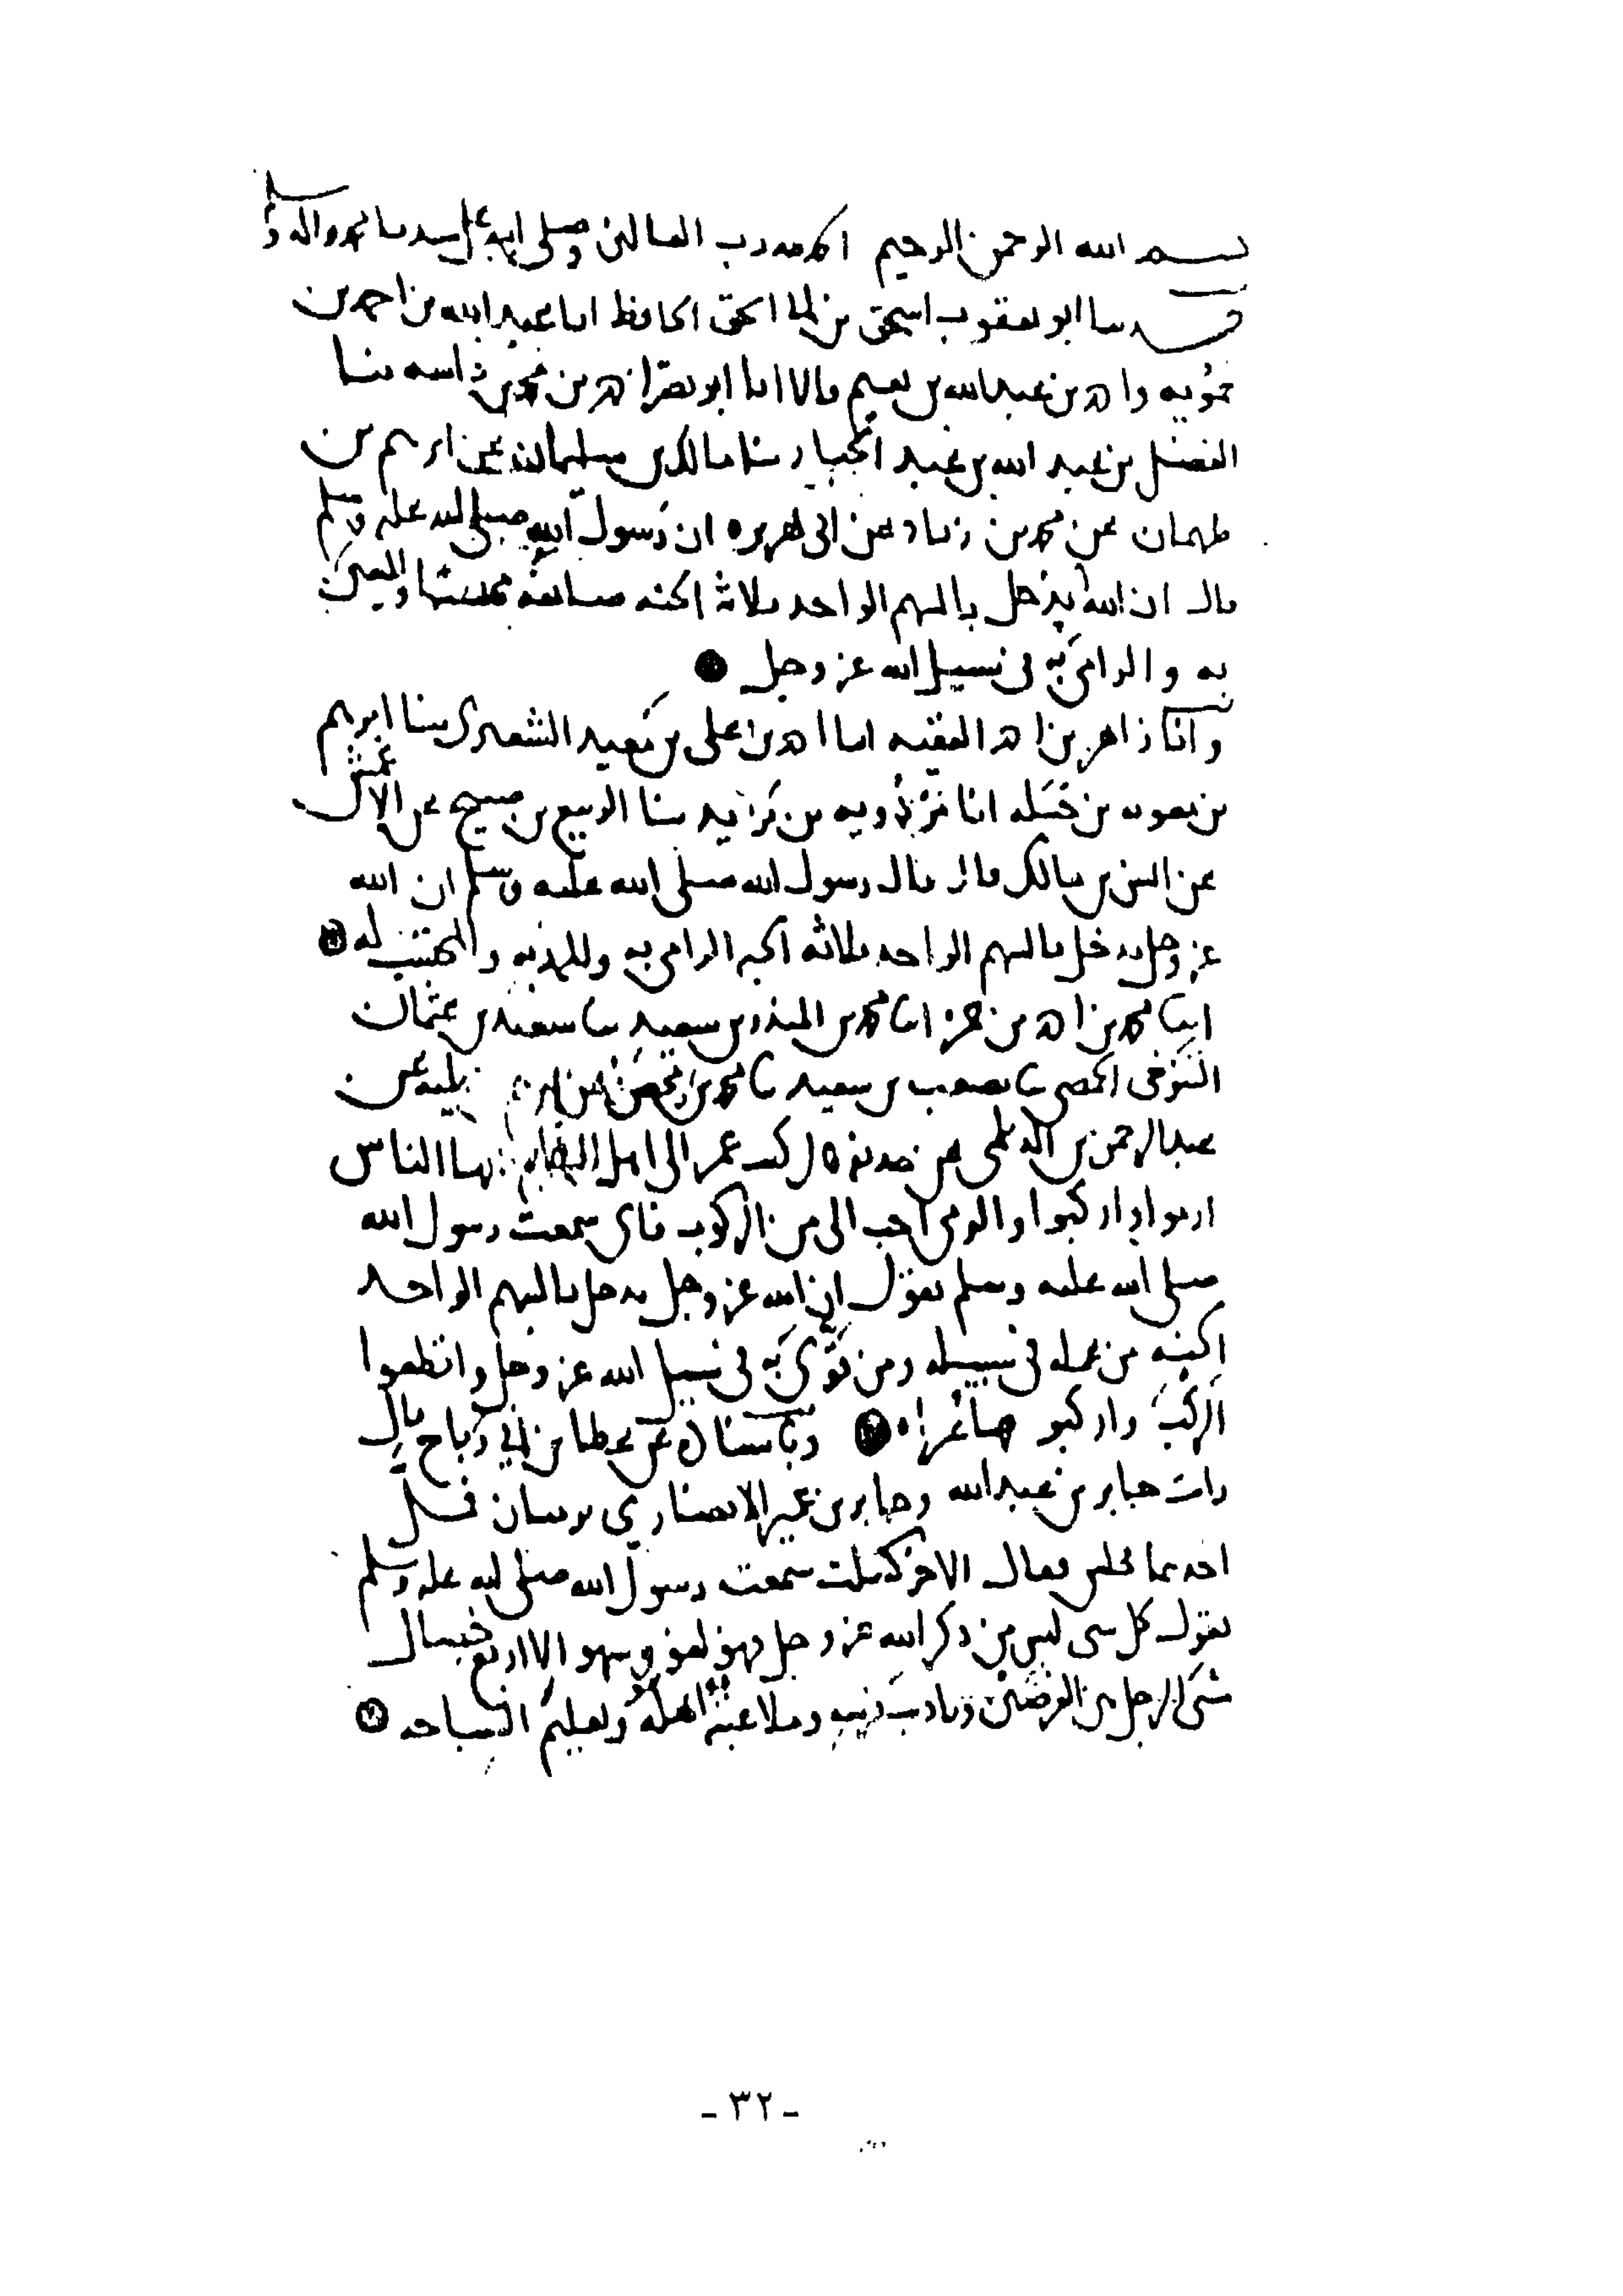 بسم الله الرحمن الرحيم الحمد لله رب العالمين وصلى الله على سيدنا محمد واله وسلم
حدثنا ابو يعقوب اسحق بن ابي اسحق الحافظ انا عبد الله بن احمد بن
حمويه واحمد بن عبد الله بن نعيم قالا انا ابو نصر احمد بن محمد بن ثنا
الفضل بن عبد الله بن عبد الجبار ثنا مالك بن سليمان عن ابرهيم بن
طهمان عن محمد بن زياد عن ابي هريره ان رسول الله صلى الله عليه وسلم
قال ان الله يدخل بالسهم الواحد ثلاثة الجنه صانعه محتسبا والمعين
به والرامي به في سبيل الله عز وجل
وانا زاهر بن احمد الفقيه انا احمد بن علي بن معبد الشعيري ثنا ابرهيم
بن انا بن ثنا الربيع بن صبيح عن الاعمش
عن انس بن مالك قال قال رسول الله صلى الله عليه وسلم ان الله
عز وجل يدخل بالسهم الواحد ثلاثه الجنه الرامي به والممد به والمحتسب له
انبا محمد بن احمد بن حمزه انا محمد بن المنذر بن سعيد ثنا سعيد بن عثمان
التنوخي الحمصي ثنا مصعب بن سعيد ثنا محمد بن محصن عن ابرهيم بن عن
عبد الرحمن بن الديلمي عن حذيفه قال كتب عمر الى اهل الشام ايها الناس
ارموا واركبوا والرمي احب الي من الركوب فاني سمعت رسول الله
صلى الله عليه وسلم يقول ان الله عز وجل يدخل بالسهم الواحد
الجنه من عمله في سبيله ومن قوي به في سبيل الله عز وجل واقطعوا
الركب واركبوا وباسناده عن عطا بن ابي رباح قال
رايت جابر بن عبد الله وجابر بن عمير الانصاري يرميان فمل
احدهما فجلس فقال الاخر كسلت سمعت رسول الله صلى الله عليه وسلم
يقول كل شي ليس من ذكر الله عز وجل فهو لغو وسهو الا اربع خصال
مشي الرجل بين الغرضين وتاديب فرسه وملاعبته اهله وتعليم السباحه
- ٣٢ -